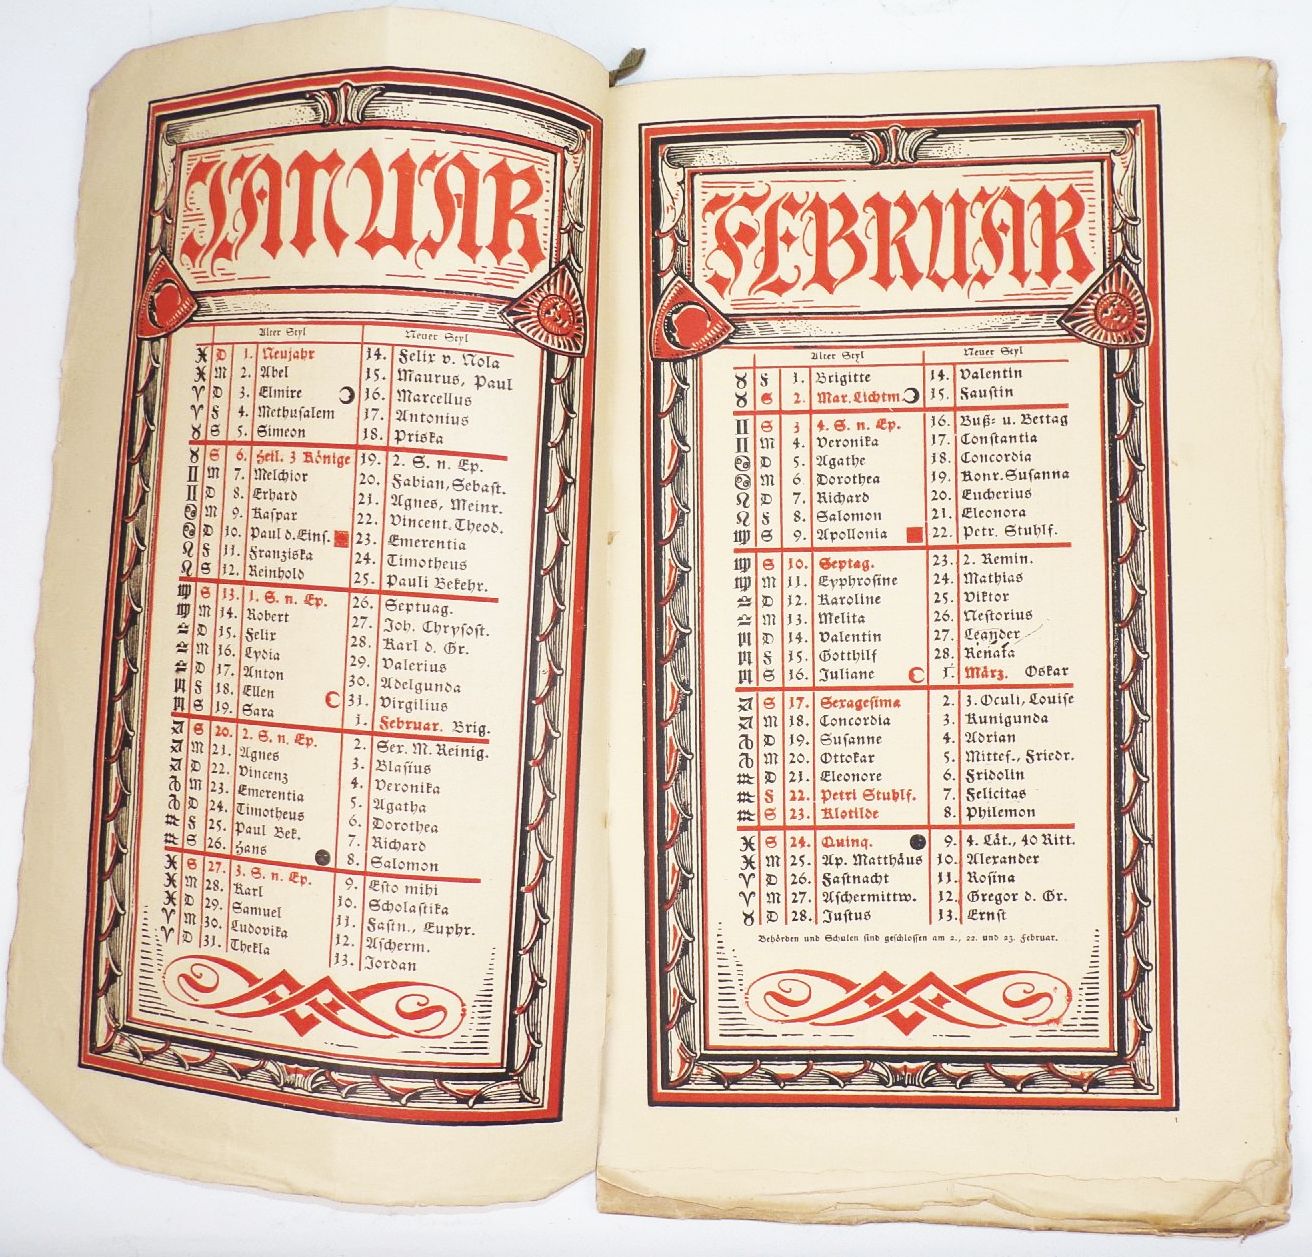 JANUAR
Alter Styl Neuer Styl
♓ D 1. Neujahr 14. Felix v. Nola
♓ M 2. Abel 15. Maurus, Paul
♈ D 3. Elmire 16. Marcellus
♈ F 4. Methusalem 17. Antonius
♉ S 5. Simeon 18. Priska
♉ S 6. Heil. 3 Könige 19. 2. S. n. Ep.
♊ M 7. Melchior 20. Fabian, Sebast.
♊ D 8. Erhard 21. Agnes, Meinr.
♋ M 9. Kaspar 22. Vincent. Theod.
♋ D 10. Paul d. Eins. 23. Emerentia
♌ F 11. Franziska 24. Timotheus
♌ S 12. Reinhold 25. Pauli Bekehr.
♍ S 13. 1. S. n. Ep. 26. Septuag.
♍ M 14. Robert 27. Joh. Chrysost.
♎ D 15. Felix 28. Karl d. Gr.
♎ M 16. Lydia 29. Valerius
♎ D 17. Anton 30. Adelgunda
♏ F 18. Ellen 31. Virgilius
♏ S 19. Sara 1. Februar. Brig.
♐ S 20. 2. S. n. Ep. 2. Sex. M. Reinig.
♐ M 21. Agnes 3. Blasius
♐ D 22. Vincenz 4. Veronika
♑ M 23. Emerentia 5. Agatha
♑ D 24. Timotheus 6. Dorothea
♒ F 25. Paul Bek. 7. Richard
♒ S 26. Hans 8. Salomon
♓ S 27. 3. S. n. Ep. 9. Esto mihi
♓ M 28. Karl 10. Scholastika
♓ D 29. Samuel 11. Fastn., Euphr.
♈ M 30. Ludovika 12. Ascherm.
♈ D 31. Thekla 13. Jordan
FEBRUAR
Alter Styl Neuer Styl
♉ F 1. Brigitte 14. Valentin
♉ S 2. Mar. Lichtm. 15. Faustin
♊ S 3 4. S. n. Ep. 16. Buß- u. Bettag
♊ M 4. Veronika 17. Constantia
♋ D 5. Agathe 18. Concordia
♋ M 6. Dorothea 19. Konr. Susanna
♌ D 7. Richard 20. Eucherius
♌ F 8. Salomon 21. Eleonora
♍ S 9. Apollonia 22. Petr. Stuhlf.
♍ S 10. Septag. 23. 2. Remin.
♍ M 11. Eyphrosine 24. Mathias
♎ D 12. Karoline 25. Viktor
♎ M 13. Melita 26. Nestorius
♏ D 14. Valentin 27. Leander
♏ F 15. Gotthilf 28. Renata
♏ S 16. Juliane 1. März. Oskar
♐ S 17. Sexagesima 2. 3. Oculi, Louise
♐ M 18. Concordia 3. Kunigunda
♑ D 19. Susanne 4. Adrian
♑ M 20. Ottokar 5. Mittef., Friedr.
♒ D 21. Eleonore 6. Fridolin
♒ F 22. Petri Stuhlf. 7. Felicitas
♒ S 23. Klotilde 8. Philemon
♓ S 24. Quinq. 9. 4. Lät., 40 Ritt.
♓ M 25. Ap. Matthäus 10. Alexander
♈ D 26. Fastnacht 11. Rosina
♈ M 27. Aschermittw. 12. Gregor d. Gr.
♉ D 28. Justus 13. Ernst
Behörden und Schulen sind geschlossen am 2., 22. und 23. Februar.